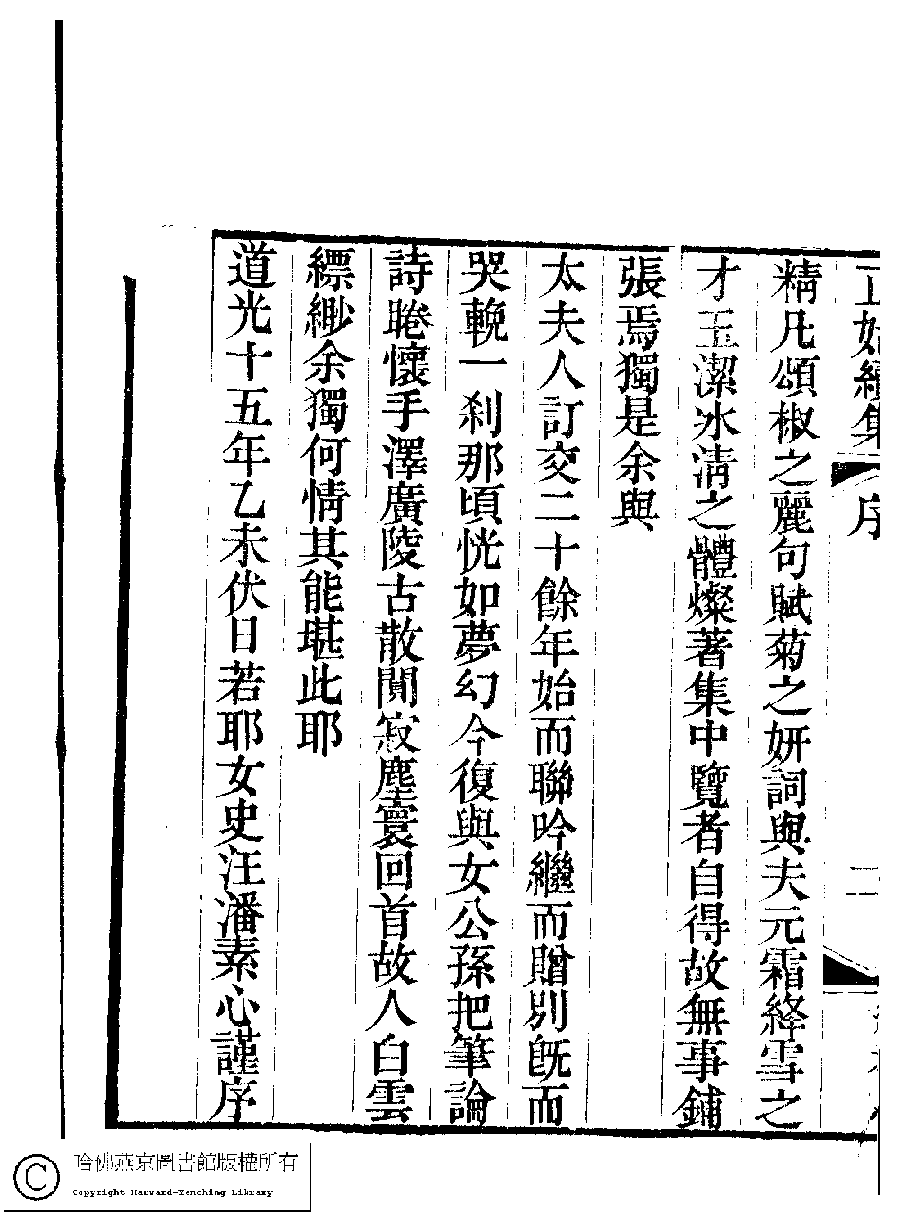 正始續集 序 二
精凡頌椒之麗句賦菊之妍詞與夫元霜絳雪之
才玉潔冰清之體燦著集中覽者自得故無事鋪
張焉獨是余與
太夫人訂交二十餘年始而聯吟繼而贈別旣而
哭輓一刹那頃恍如夢幻今復與女公孫把筆論
詩睠懷手澤廣陵古散閴寂塵寰回首故人白雲
縹緲余獨何情其能堪此耶
道光十五年乙未伏日若耶女史汪潘素心謹序
哈佛燕京圖書館版權所有
Copyright Harvard-Yenching Library